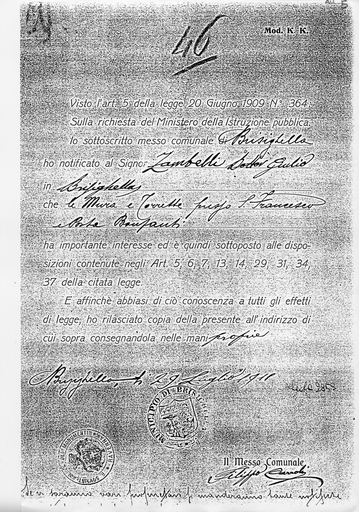 46
Mod. K. K.
Visto l'art. 5 della legge 20 Giugno 1909 N.° 364;
Sulla richiesta del Ministero della Istruzione pubblica,
Io sottoscritto messo comunale di Brisighella
ho notificato al Signor Zambelli Dottor Giulio
in Brisighella
che le Mura e Torrette presso S. Francesco
e Porta Bonfanti
ha importante interesse ed è quindi sottoposto alle dispo-
sizioni contenute negli Art. 5, 6, 7, 13, 14, 29, 31, 34,
37 della citata legge.
E affinchè abbiasi di ciò conoscenza a tutti gli effetti
di legge, ho rilasciato copia della presente all'indirizzo di
cui sopra consegnandola nelle mani proprie
Brisighella, 29 Luglio 1911
MUNICIPIO DI BRISIGHELLA
Il Messo Comunale
Filippo
Se vi saranno vari proprietari si manderanno tante notifiche